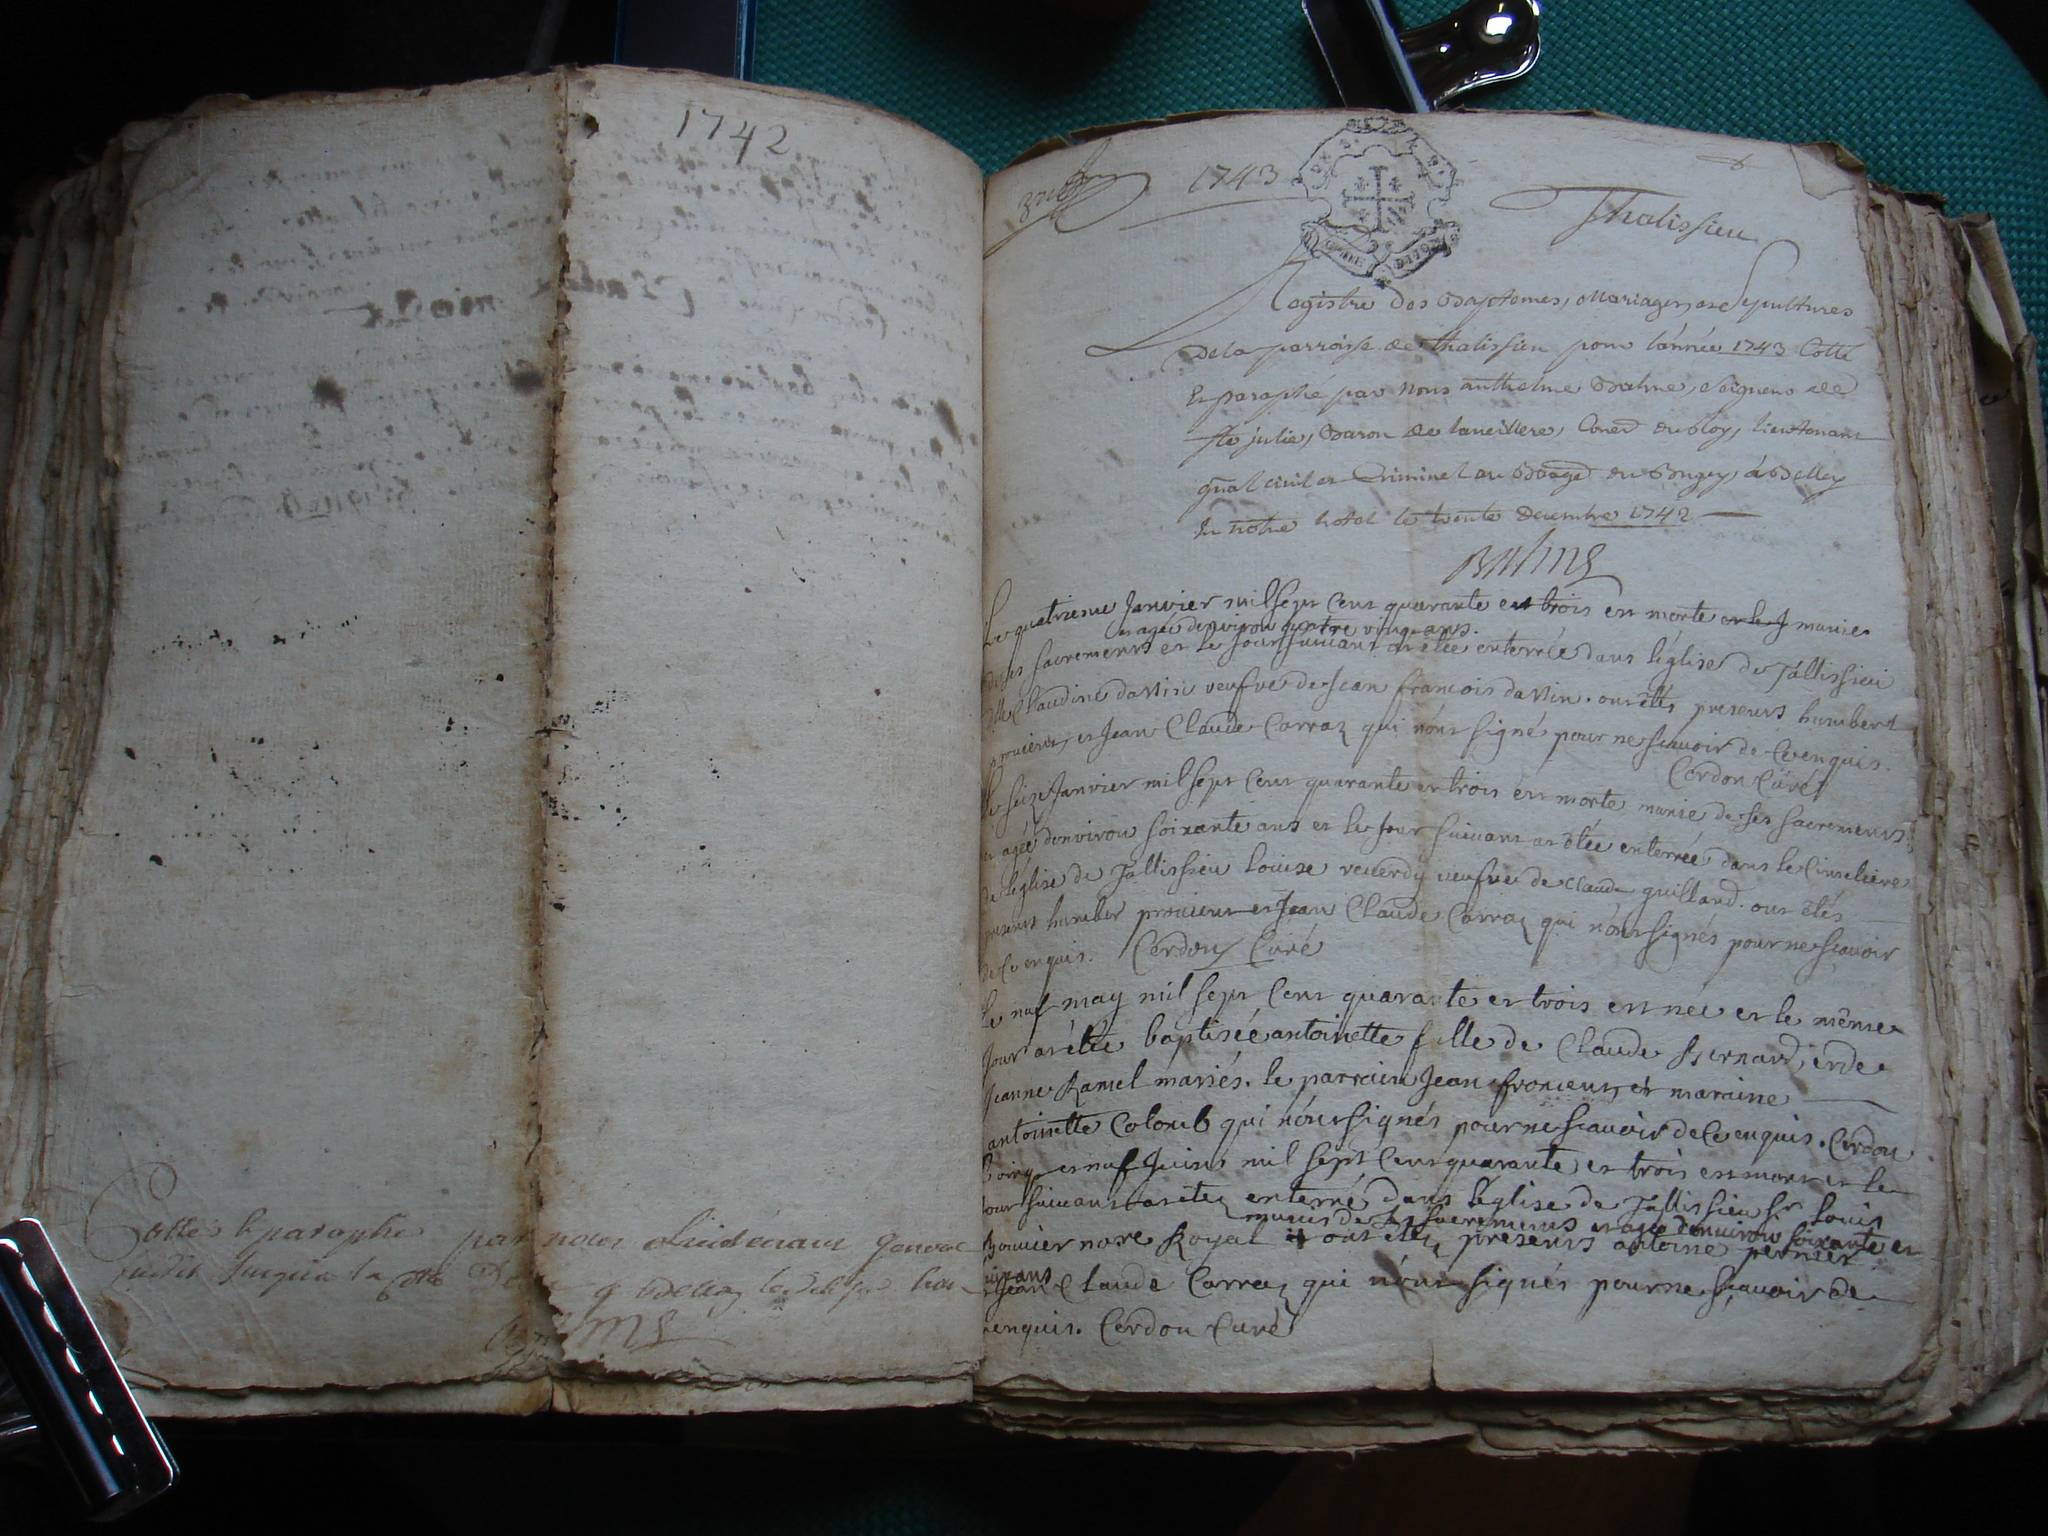 1742
Cotté & paraphé par nous Lieutenant General
susdit jusqu'a la
1743
Thalissieu
Registre des Baptemes, Mariages, et Sepultures
de la parroisse de thalissieu pour l'année 1743 Cotté
Et paraphé par Nous anthelme Balme, Seigneur de
Ste julie, Baron de Conser du Roy, lieutenant
gnal civil et Criminel au Baage du Bugey, à Belley
En notre hotel le trente Decembre 1742
Balme
Le quatrieme Janvier mil sept cent quarante et trois est morte et le J munie
et agée denviron quatre vingt ans.
de ses sacrements et le jour suivant at étée enterrée dans léglise de Tallissieu
dlle Claudine davin veufve de Jean francois davin. ont étés presents humbert
et Jean Claude Carraz qui nónt signé pour ne scavoir de ce enquis.
Cerdon Curé
le seize Janvier mil sept cent quarante et trois est morte munie de ses sacrements
et agée denviron soixante ans et le jour suivant at étée enterrée dans le Cimetiere
de léglise de Tallissieu Louise reverdy veufve de claude guilland. ont étés
presents humber et Jean Claude Carraz qui nónt signés pour ne scavoir
de ce enquis. Cerdon Curé
le neuf may mil sept cent quarante et trois est nee et le même
jour at étée baptisée antoinette fille de Claude Bernard, et de
Jeanne Ramel mariés. le parrain Jean et maraine
antoinette Colomb qui nónt signés pour ne scavoir de ce enquis. Cerdon
et neuf Juin mil sept cent quarante et trois est mort et le
jour suivant at étez enterré dans léglise de Tallissieu sr louis
munis de ses sacrements et agé denviron soixante et
Bouvier nore Royal ont étez presents antoine pernier
ans
et Jean Claude Carraz qui nónt signés pour ne scavoir de
ce enquis. Cerdon Curé